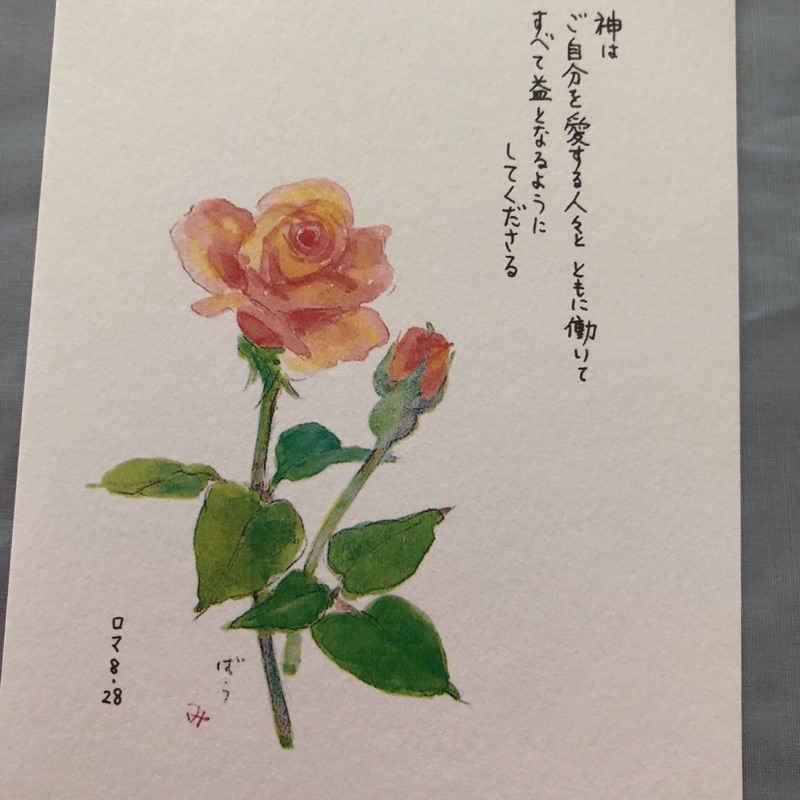 神は
ご自分を愛する人々と ともに働いて
すべて益となるように
してくださる
ロマ8・28
ばら
み